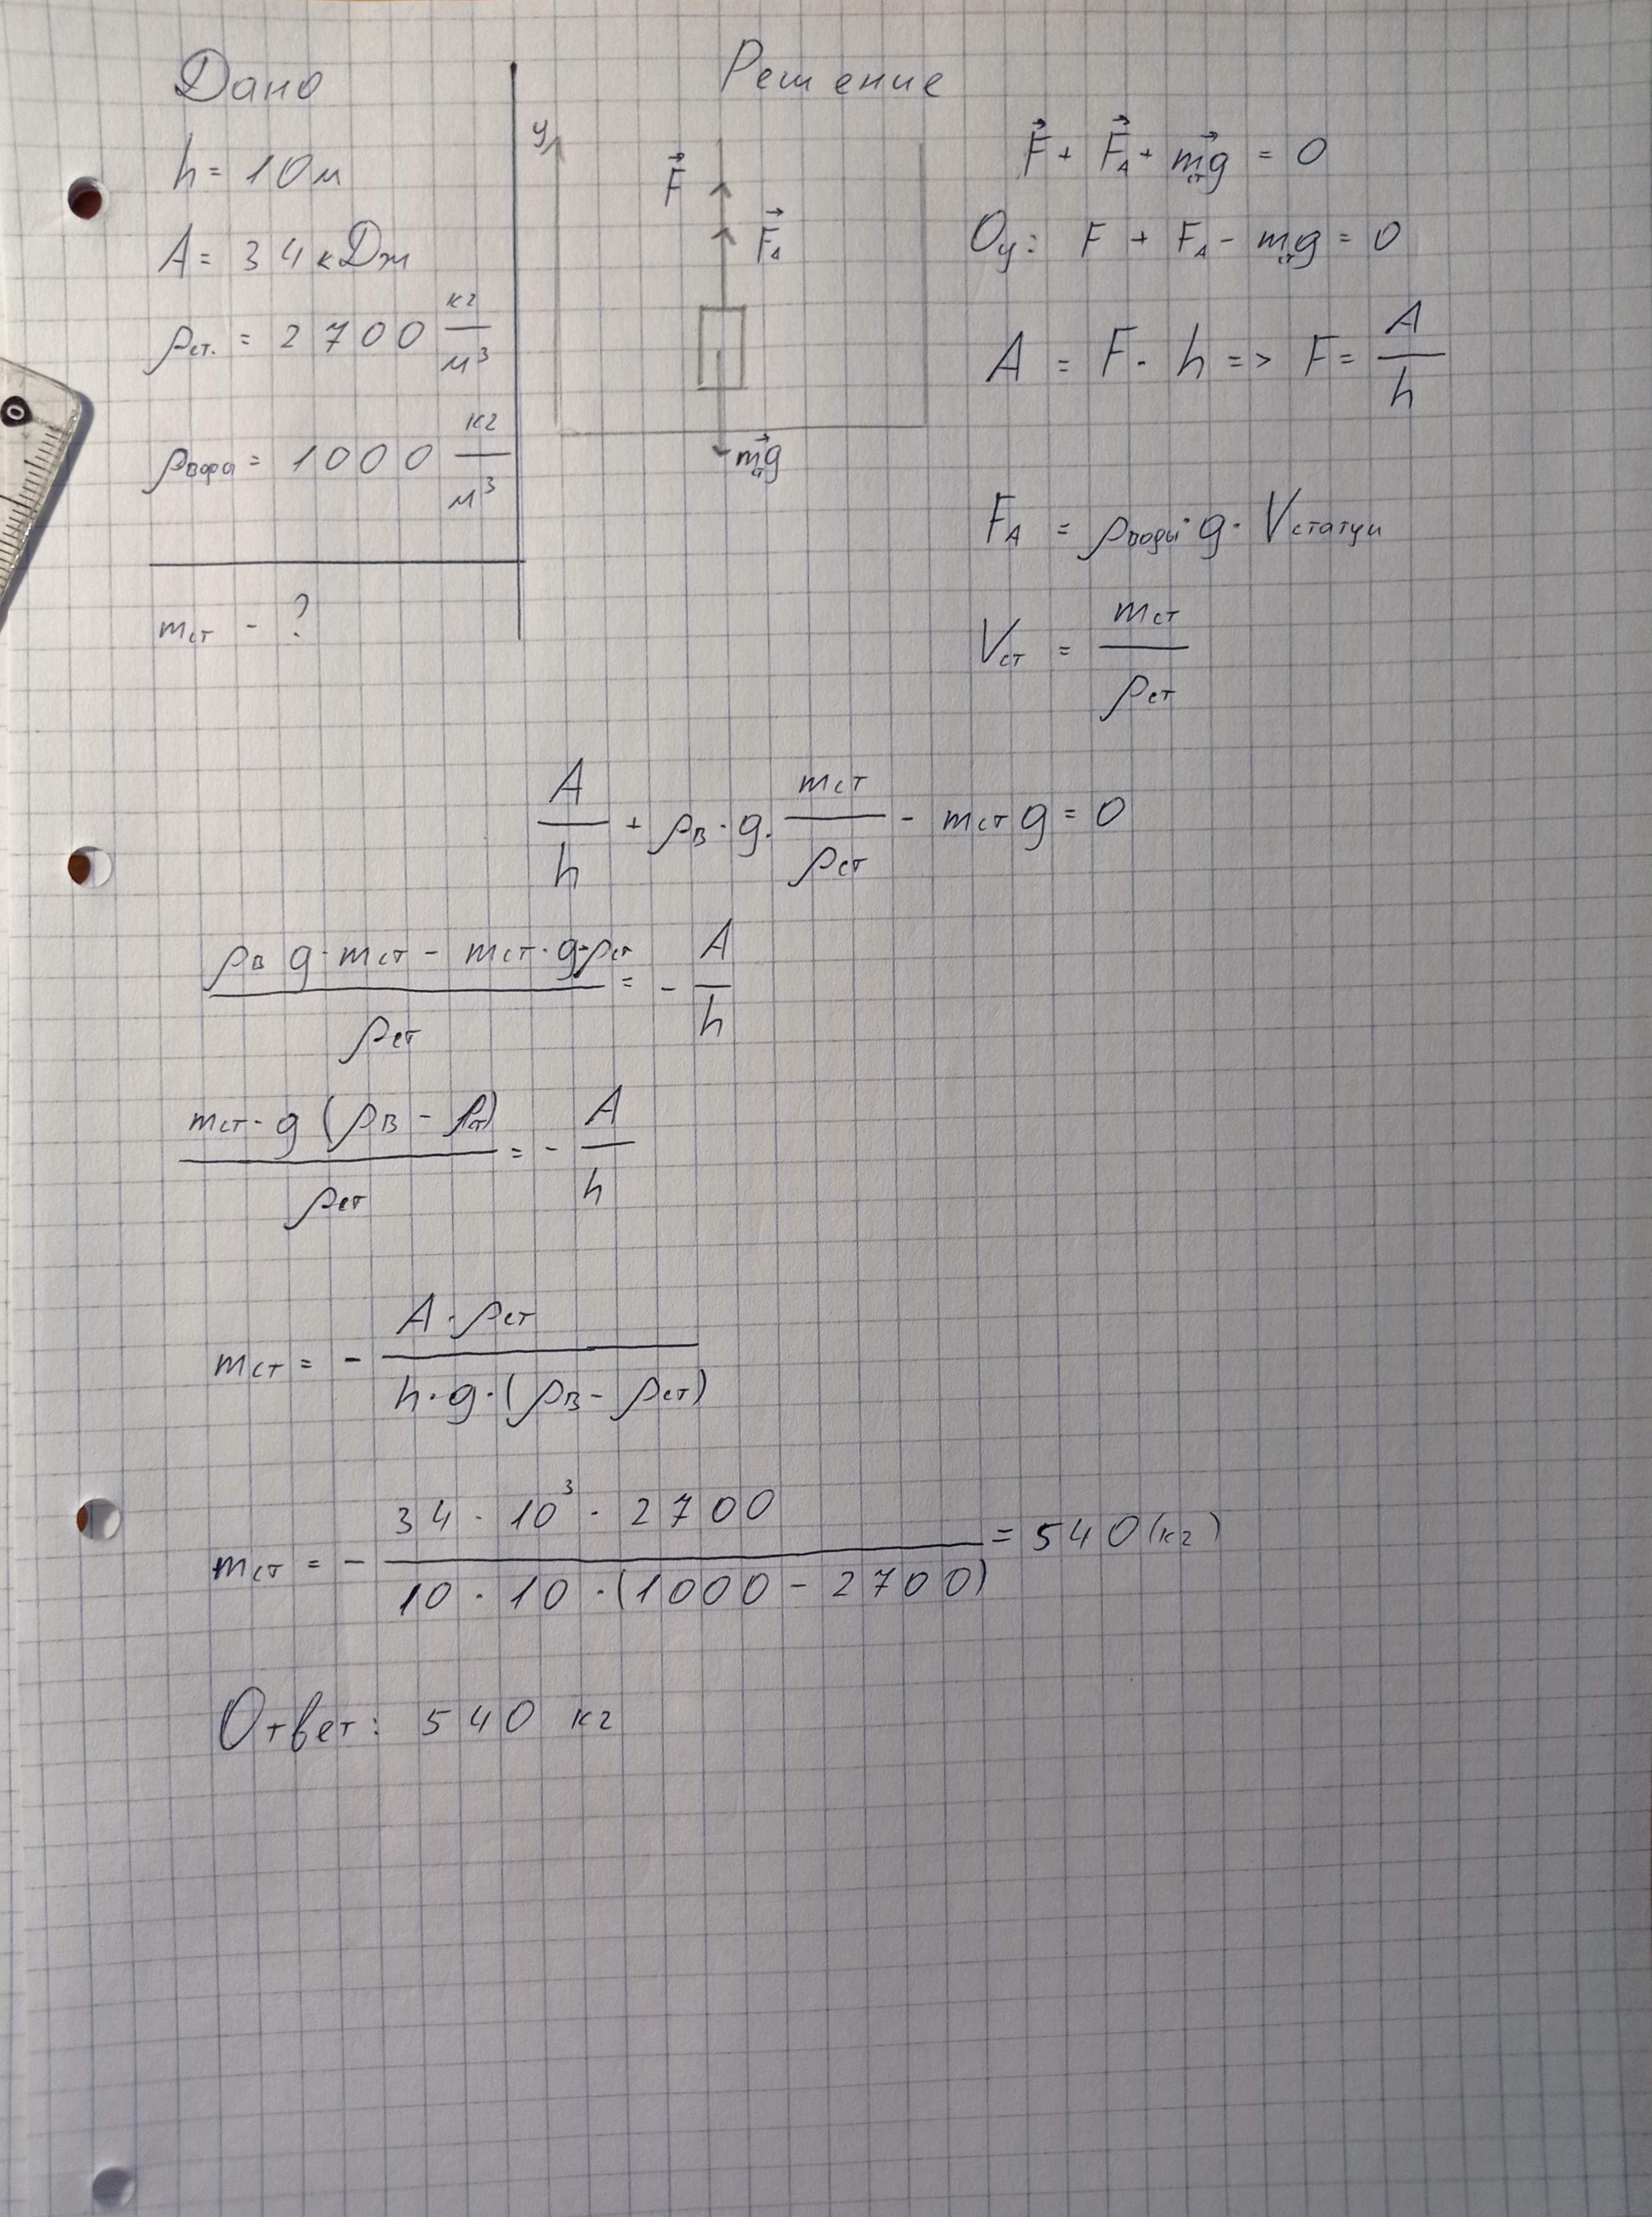 Дано
h = 10 м
A = 34 кДж
ρст. = 2700 кг/м³
ρвода = 1000 кг/м³
mст - ?
Решение
y
F⃗
F⃗A
mстg⃗
F⃗ + F⃗A + mстg⃗ = 0
Oy: F + FA - mстg = 0
A = F · h => F = A/h
FA = ρводы · g · Vстатуи
Vст = mст/ρст
A/h + ρв · g · mст/ρст - mст g = 0
(ρв g · mст - mст · g · ρст)/ρст = - A/h
mст · g (ρв - ρст)/ρст = - A/h
mст = - A · ρст/(h · g · (ρв - ρст))
mст = - 34 · 10³ · 2700/(10 · 10 · (1000 - 2700)) = 540 (кг)
Ответ: 540 кг
0